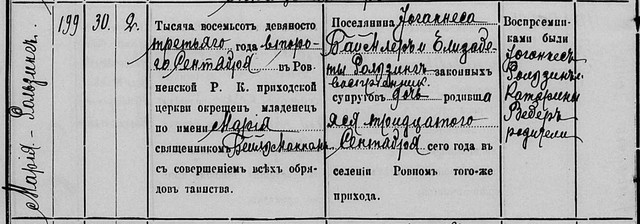 Марія - Рользингъ.
199
30.
2.
Тысяча восемьсот девяносто
третьяго года второ-
го Сентября въ Ров-
ненской Р. К. приходской
церкви окрещен младенец
по имени Марія
священником
с совершением всѣх обря-
дов таинства.
Поселянина Іоганнеса
и Елизабе-
ты законных
супругов дочь родивша
яся тридцатого
Сентября сего года в
селении Ровном того-же
прихода.
Воспреемни-
ками были
Іоганнесъ
Катарины
Веберъ
родители